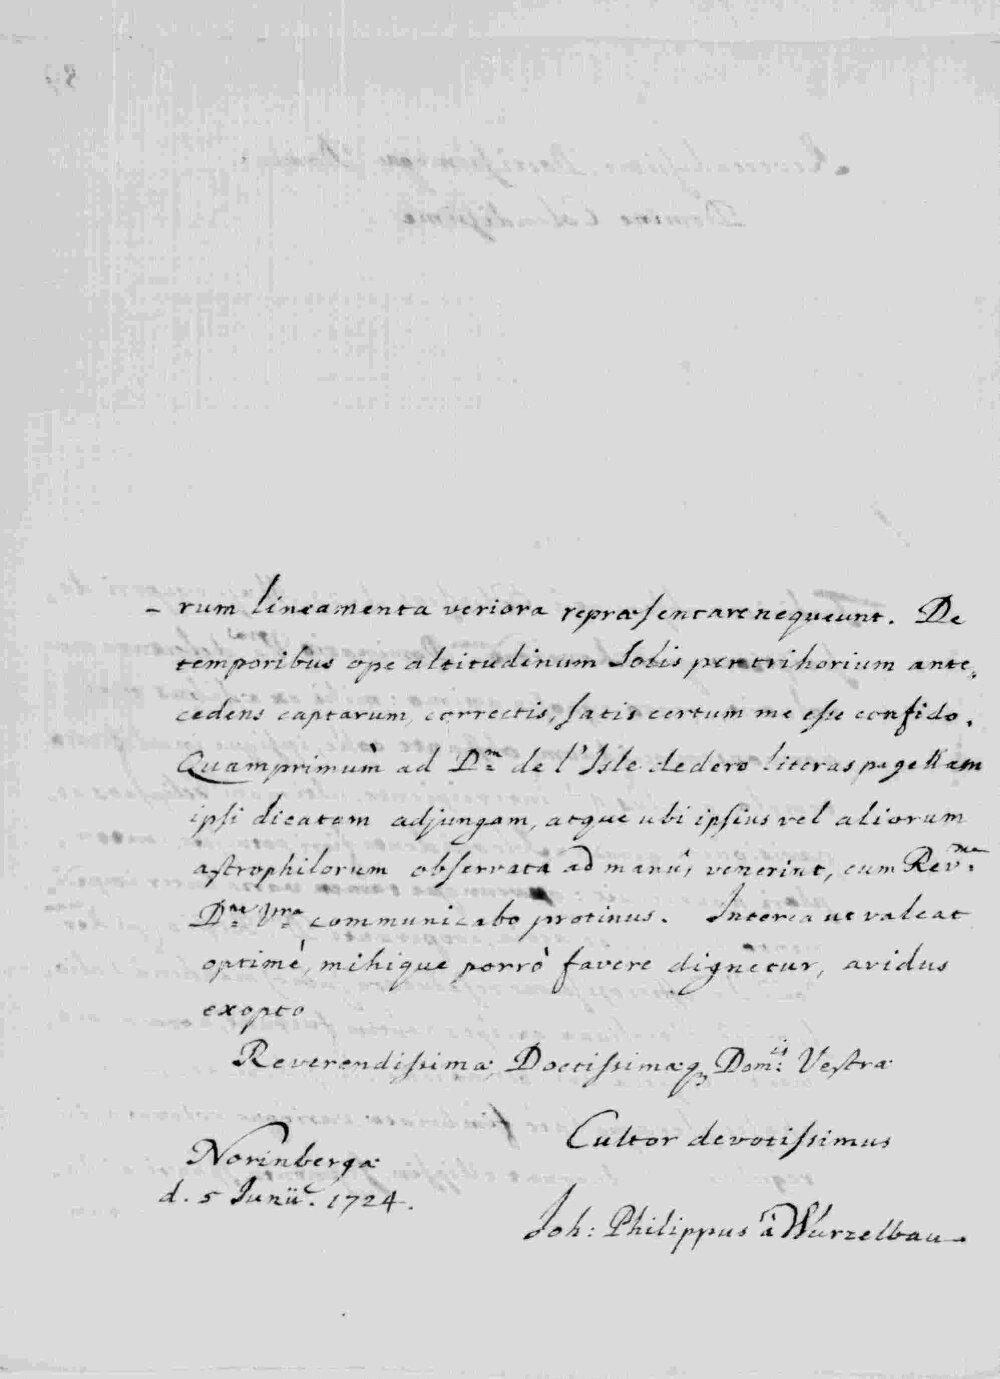 - rum lineamenta veriora repræsentare nequeunt. De
temporibus ope altitudinum Solis per trihorium ante,,
cedens captarum, correctis, satis certum me esse confido.
Quamprimùm ad D.m de l'Isle dedero literas pagellam
ipsi dicatam adjungam, atque ubi ipsius vel aliorum
astrophilorum observata ad manus venerint, cum Rev.ma
D.ne V.ra communicabo protinus. Interea ut valeat
optimè, mihique porrò favere dignetur, avidus
exopto
Reverendissimæ, Doctissimæq; Dom.is Vestræ
Cultor devotissimus
Norinbergæ
d. 5 Junii. 1724.
Joh: Philippus à Wurzelbau